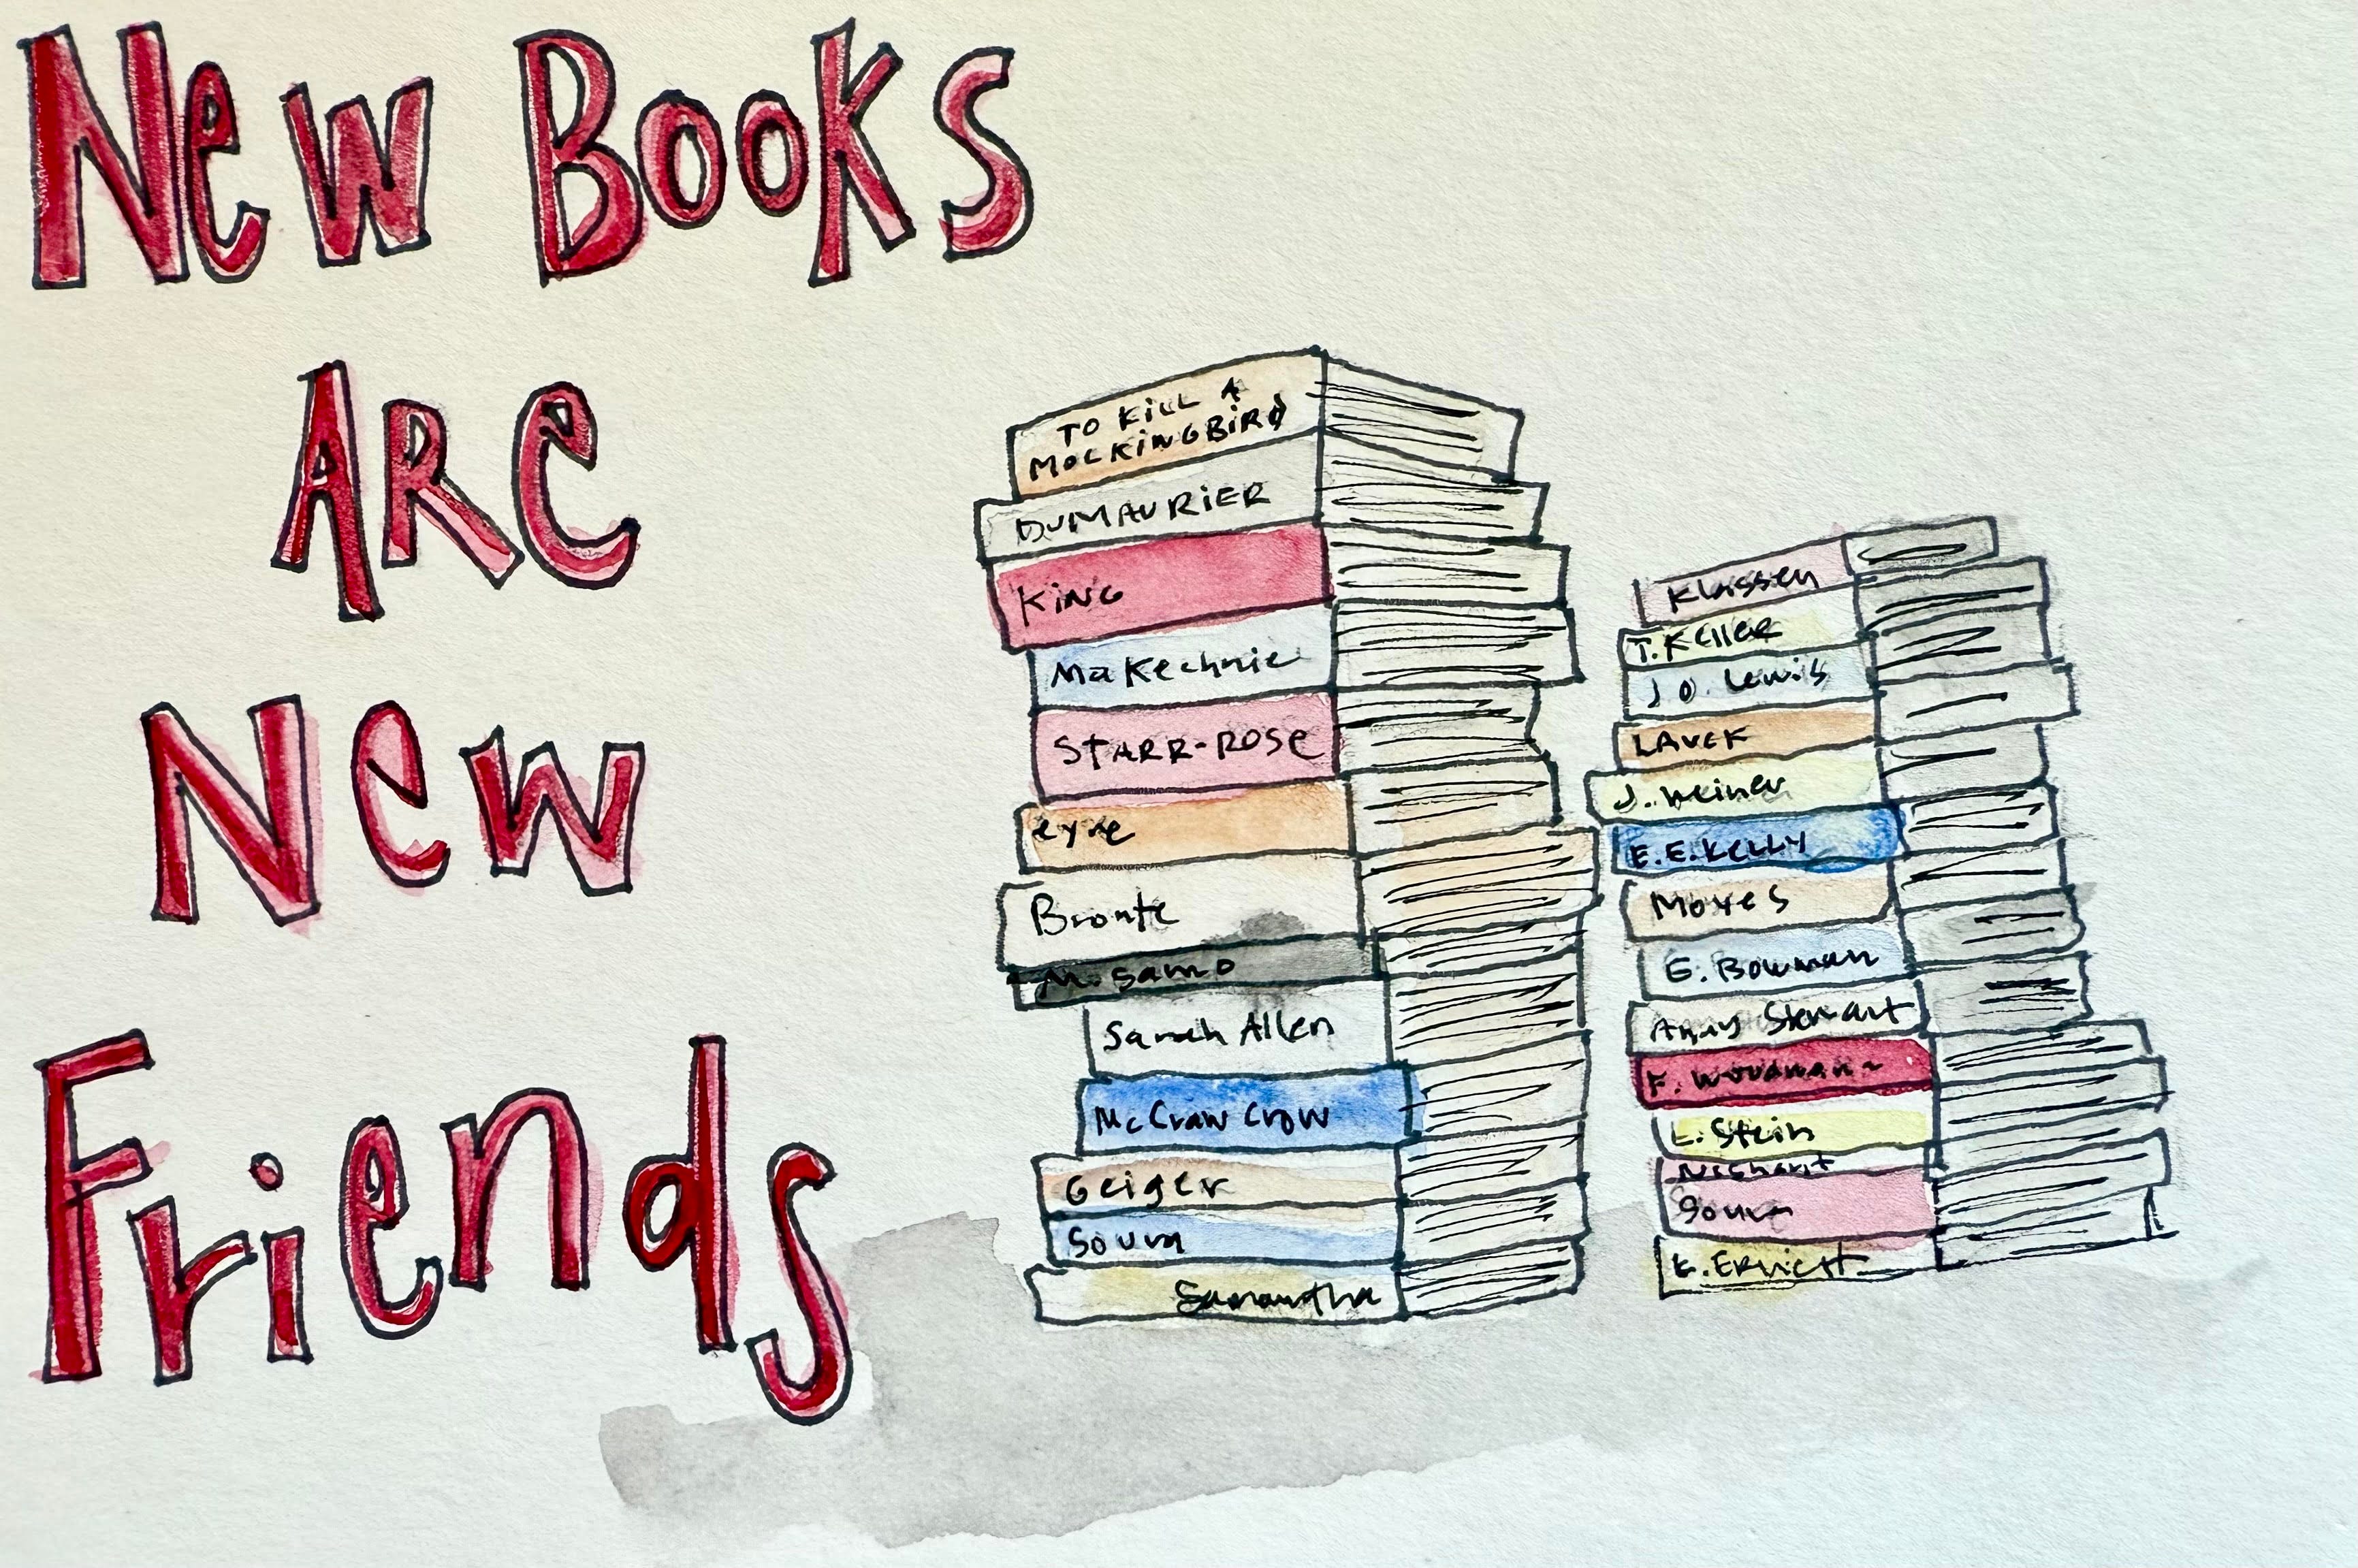 New Books
Are
New
Friends
TO KiLL A
MOCKiNGBiRD
DUMAURiER
KiNG
MaKechnie
STARR-ROSe
eyre
Bronte
M. Samo
Sarah Allen
McCraw Crow
Geiger
Soum
Samantha
Klassen
T. Keller
J.O. Lewis
LAUCK
J. Weiner
E.E. KELLY
Moyes
G. Bowman
Amy Stewart
F. Woodman
L. Stein
Nishant